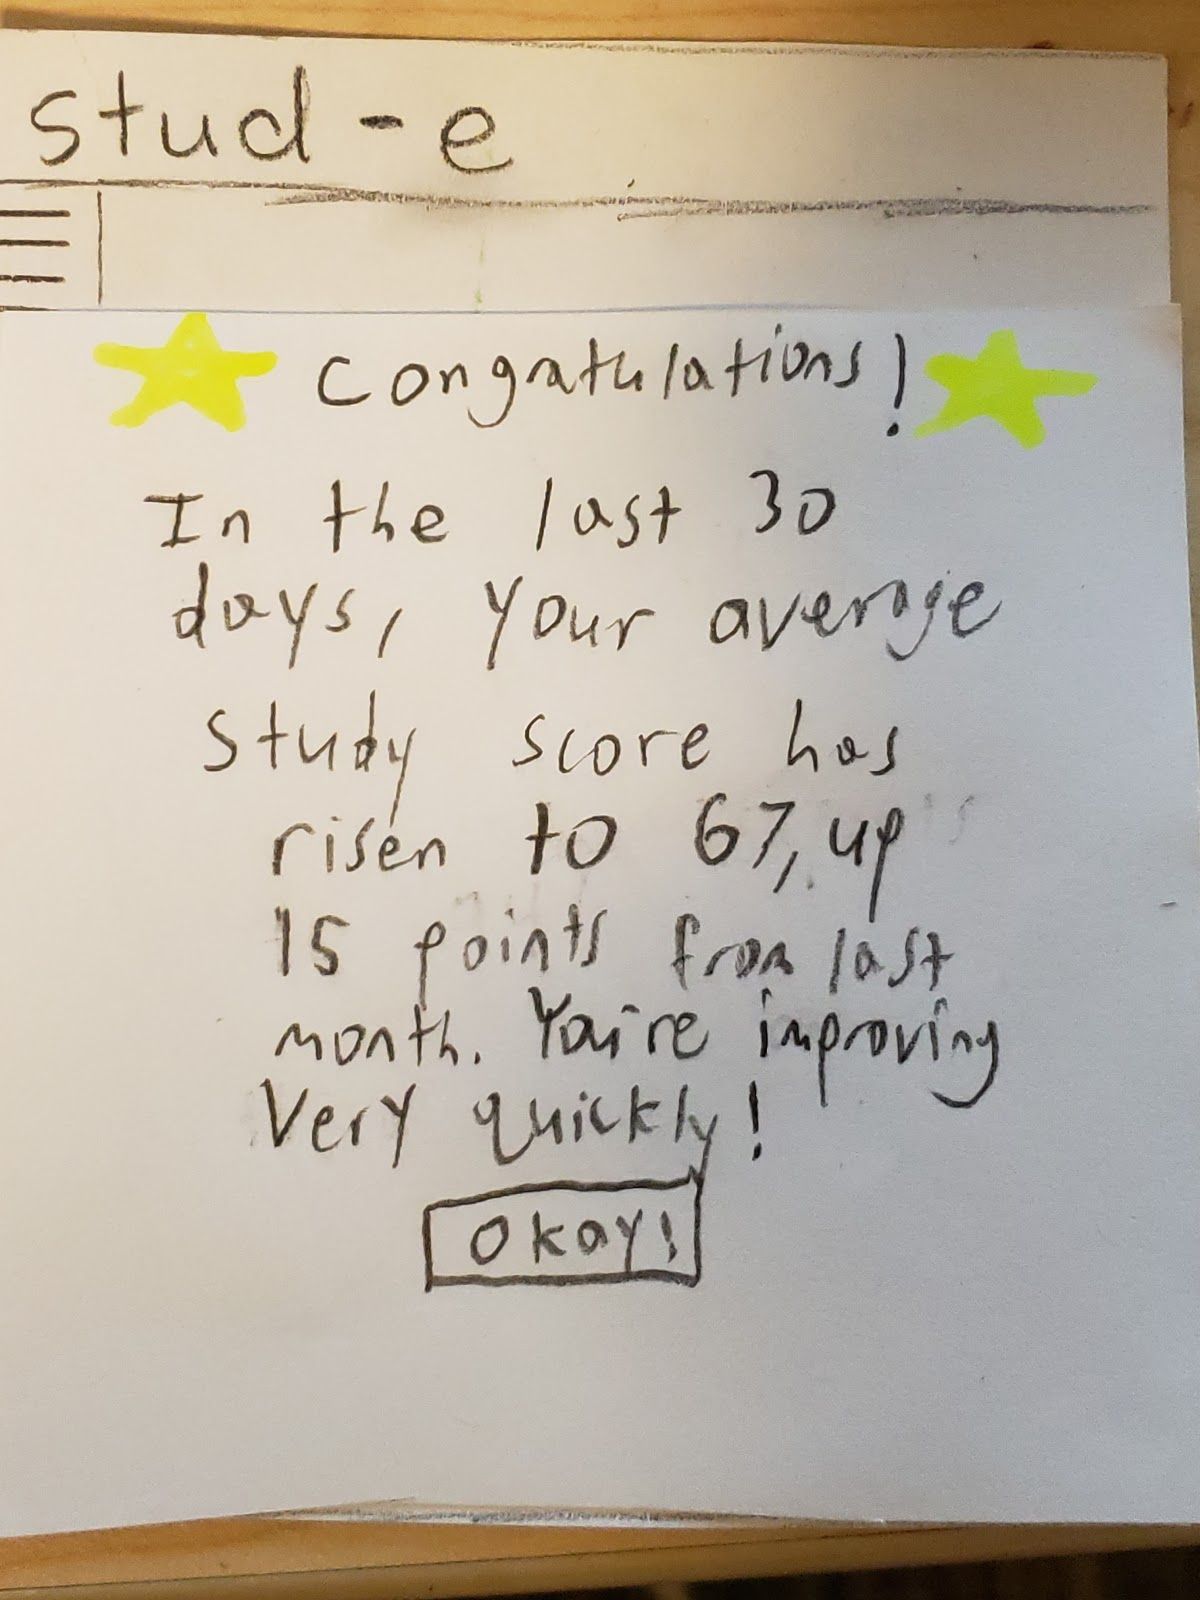 stud-e
Congratulations!
In the last 30
days, your average
study score has
risen to 67, up
15 points from last
month. You're improving
Very quickly!
Okay!